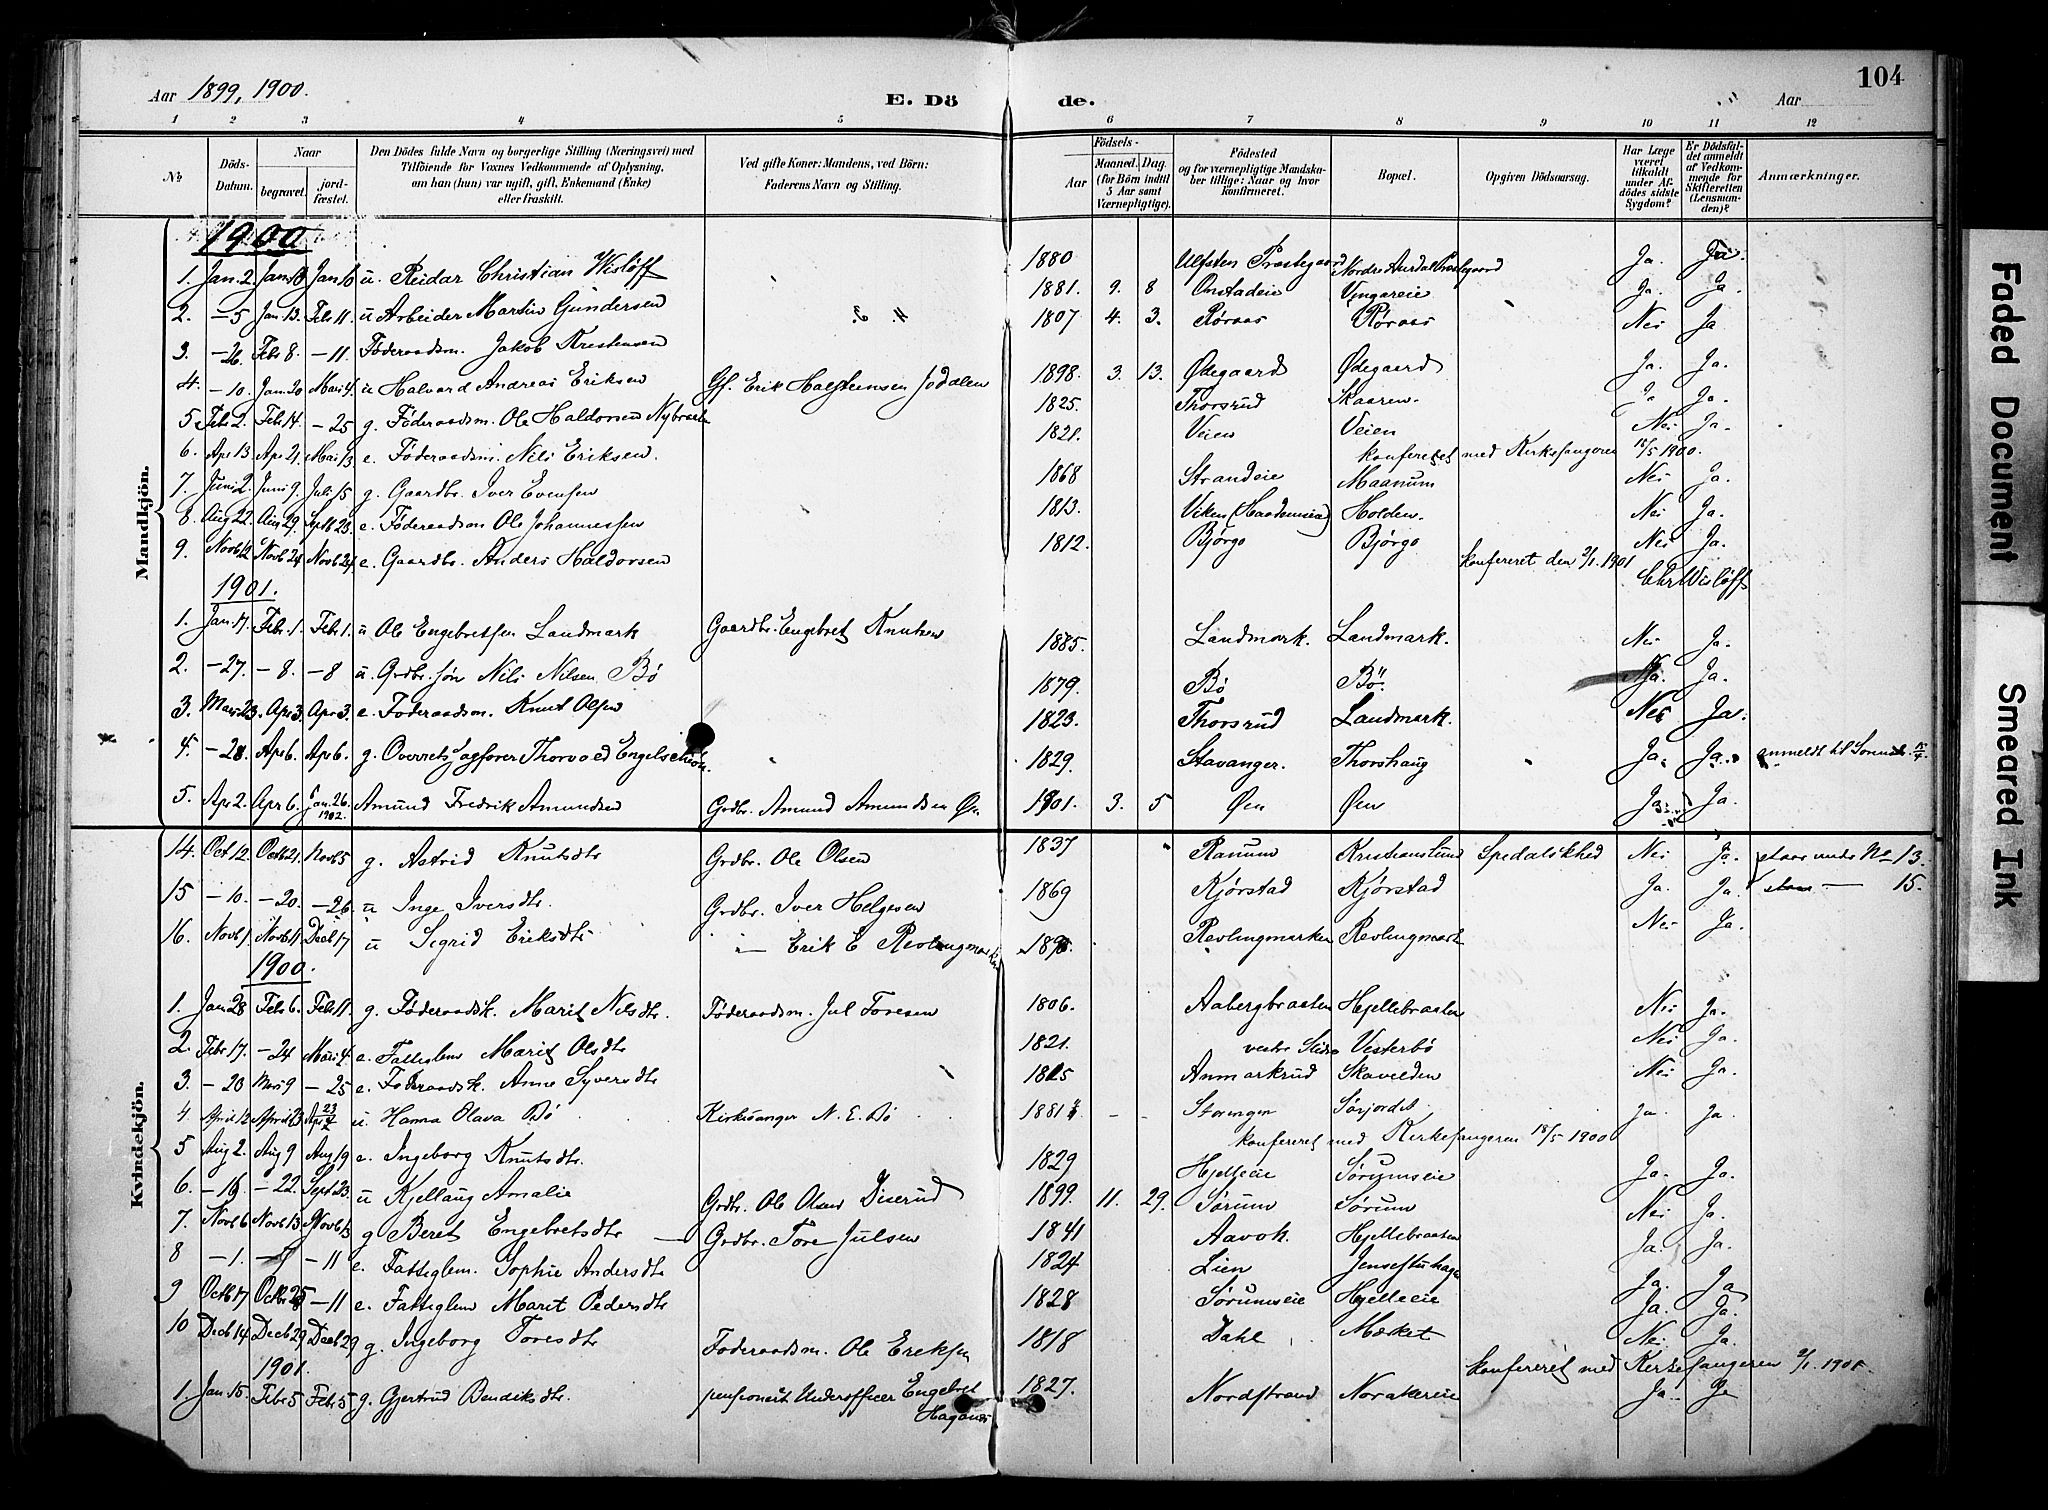 Aar 1899, 1900.
E. Dö
de.
Aar
104
1 2 3 4 5 6 7 8 9 10 11 12
№ Döds-Datum. Naar begravet. jordfæstet. Den Dödes fulde Navn og borgerlige Stilling (Næringsvei) med Tilföiende for Voxnes Vedkommende af Oplysning, om han (hun) var ugift, gift, Enkemand (Enke) eller fraskilt. Ved gifte Koner: Mandens, ved Börn: Faderens Navn og Stilling. Födsels- Aar Maaned. Dag. (for Börn indtil 5 Aar samt Værnepligtige). Födested og for værnepligtige Mandskaber tillige: Naar og hvor konfirmeret. Bopæl. Opgiven Dödsaarsag. Har Læge været tilkaldt under Afdödes sidste Sygdom? Er Dödsfaldet anmeldt af Vedkommende for Skifteretten (Lensmanden)? Anmærkninger.
Mandkjön.
1900
1. Jan. 2. Jan. Jan. 10 u. Reidar Christian Wislöff 1880 Ulfsten Præstegaard Nordre Aurdal Præstegaard Ja. Ja.
2. — 5 Jan. 13. Feb 11. u Arbeider Martin Gundersen 1881. 9. 8 Onstadeie Vangareie Ja. Ja.
3. — 26. Feb 8. — 11. Föderaadsm. Jakob Kristensen 1807 4. 3. Røraas Røraas Nei Ja
4. — 10. Jan. 20 Mars 4. u Halvard Andreas Eriksen Gf. Erik Halsteinsen Jodalen 1898. 3. 13. Ødegaard Ødegaard Ja. Ja.
5 Feb 2. Feb 14. — 25 g. Föderaadsm. Ole Haldorsen Nybraaten 1825. Thorsrud Skaaren. Ja Ja.
6. Apr 13 Apr 21. Mai 13 e. Föderaadsm. Nils Eriksen. 1821. Veien Veien Nei Ja.
konfereret med Kirkesangeren 18/5 1900.
7. Juni 2. Juni 9. Juli 15 g. Gaardbr. Iver Evensen 1868 Strandeie Maanum Nei Ja.
8. Aug 22. Aug 29. Septb 23. e. Föderaadsm Ole Johannessen 1813. Viken Holden. Nei Ja.
9. Novb 12 Novb 24 Novb 24 e. Gaardbr. Anders Haldorsen 1812. Bjørgo Bjørgo Nei Ja.
konfereret den 2/1. 1901
Chr Wislöff
1901.
1. Jan. 17. Febr. 1. Febr 1. u Ole Engebretsen Landmark Gaardbr. Engebret Knutsen 1885. Landmark. Landmark. Nei Ja.
2. — 27. — 8. — 8 u. Grdbr. søn Nils Nilsen Bö 1879. Bö Bö. Ja. Ja.
3. Mars 23. Apr 3. Apr 3. e. Föderaadsm. Knut Olsen 1823. Thorsrud Landmark. Nei Ja.
4. — 28 Apr 6. Apr 6. g. Overretssagfører Thorvald Engelschiøn. 1829. Stavanger. Thorshaug Ja. Ja. anmeldt til
5. Apr 2. Apr 6. Jan. 26. 1902. Amund Fredrik Amundsen Grdbr. Amund Amundsen Øen 1901. 3. 5 Øen Øen Ja Ja.
Kvindekjön.
14. Oct 12. Octb 21. Novb 5 g. Astrid Knutsdtr Grdbr. Ole Olsen 1837 Ranum Kristianslund Spedalskhed Nei Ja. staar under № 13.
15 — 10. — 20. — 26. u Inge Iversdtr. Grdbr. Iver Helgesen 1869 Kjørstad Kjørstad Ja. Ja. — 15.
16. Novb 1. Novb 11 Decb 17 u Sigrid Eriksdtr — Erik E Revlingmarken Revlingmarken Revlingmark Nei Ja.
1900.
1. Jan 28 Feb 6. Feb 11. g. Föderaadsk. Marit Nilsdtr. Föderaadsm. Jul Toresen 1806. Aabergbraaten Hjellebraaten Nei Ja.
2. Febr 17. — 24 Mars 4. e. Fattiglem Marit Olsdtr 1821. vestre Slidre Vesterbö Nei Ja.
3. — 20 Mars 9 — 25 e. Föderaadsk. Anne Syversdtr 1815 Anmarkrud Skavelden Nei Ja.
4 April 12 April 23 u. Hanna Olava Bö Kirkesanger N. E. Bö 1881 Storengen Sørjordet. Ja. Ja.
konfereret med Kirkesangeren 18/5 1900
5 Aug 2. Aug 9 Aug 19 e. Ingeborg Knutsdtr. 1829 Hjelleeie Sørumseie Ja. Ja.
6. — 16 — 22. Sept 23. u Kjellaug Amalie Grdbr. Ole Olsen Diserud 1899. 11. 29. Sørum Sørum Nei Ja.
7. Novb 6 Novb 13 Novb 13 g Beret Engebretsdtr Grdbr. Tore Julsen 1841 Aavok. Hjellebraaten Ja. Ja.
8 — 1. — 9 — 11 e. Fattiglem. Sophie Andersdtr 1824 Lien Jensestuhagen Ja. Ja
9 Octb 17 Octbr 25 — 11 e. Fattiglem Marit Pedersdtr 1828 Sørumseie Hjelleeie Ja. Ja.
10 Decb 14 Decb 29 Decb 29 g. Ingeborg Toresdtr Föderaadsm. Ole Eriksen 1818 Dahl Mæket Nei Ja.
konfereret med Kirkesangeren 2/1. 1901.
1901.
1. Jan. 15. Febr 5 Febr 5 g. Gjertrud Bendiksdtr. pensioneret Underofficer Engebret Hagenes 1827. Nordstrand Norakereie Ja. Ja
Faded Document
Smeared Ink